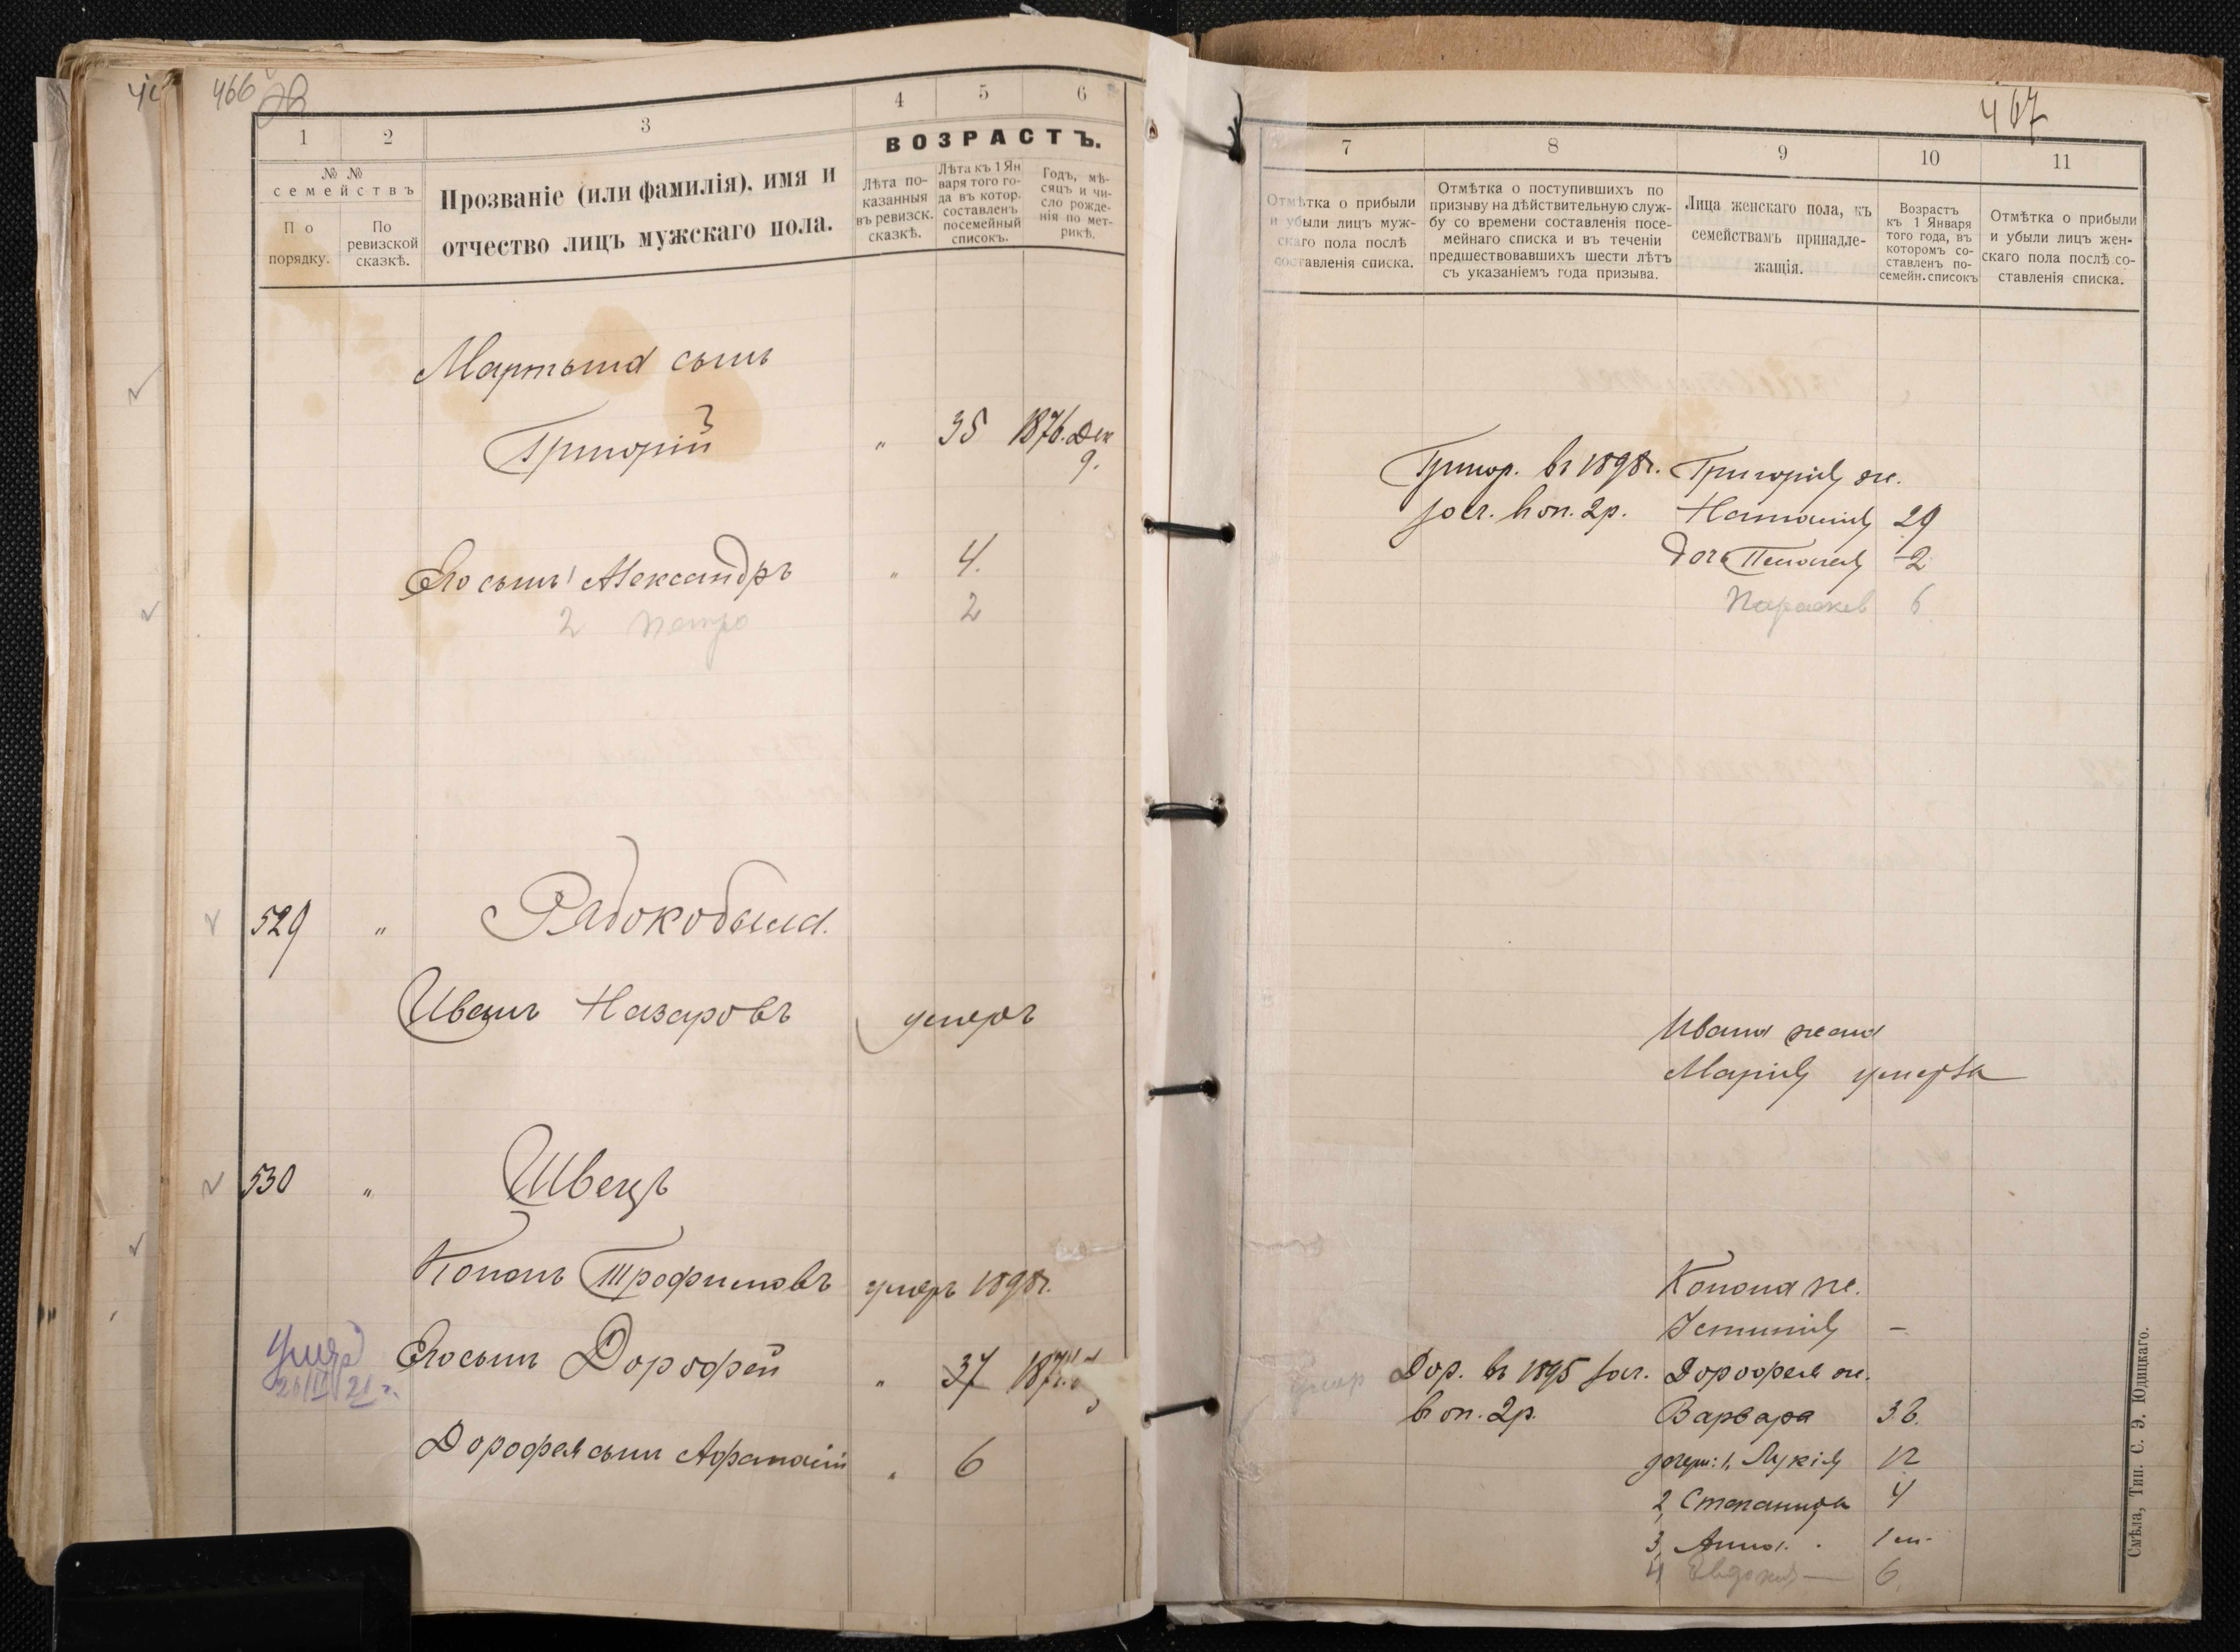 466
1
2
3
4
5
6
ВОЗРАСТЪ.
№ №
семействъ
По
порядку.
По
ревизской
сказкѣ.
Прозваніе (или фамилія), имя и
отчество лицъ мужскаго пола.
Лѣта по-
казанныя
въ ревизск.
сказкѣ.
Лѣта къ 1 Ян
варя того го-
да въ котор.
составленъ
посемейный
списокъ.
Годъ, мѣ-
сяцъ и чи-
сло рожде-
нія по мет-
рикѣ.
Мартына сынъ
Григорій " 35 1876. Дек
9.
Его сынъ 1 Александръ " 4.
2 Петро 2
529 " Рябокобыла.
Иванъ Назаровъ умеръ
530 " Швецъ
Кононъ Трофимовъ умеръ 1898г.
Его сынъ Дорофей " 37 187
Дорофея сынъ Афанасій " 6
467
7
8
9
10
11
Отмѣтка о прибыли
и убыли лицъ муж-
скаго пола послѣ
составленія списка.
Отмѣтка о поступившихъ по
призыву на дѣйствительную служ-
бу со времени составленія посе-
мейнаго списка и въ теченіи
предшествовавшихъ шести лѣтъ
съ указаніемъ года призыва.
Лица женскаго пола, къ
семействамъ принадле-
жащія.
Возрастъ
къ 1 Января
того года, въ
которомъ со-
ставленъ по-
семейн. списокъ
Отмѣтка о прибыли
и убыли лицъ жен-
скаго пола послѣ со-
ставленія списка.
Григор. въ 1898г. Григорія ж.
зач. в оп. 2р. Наталія 29
дочь Пелагея 2
Параскев 6
Ивана жена
Марія умерла
Конона ж.
Устинія -
умер Дор. въ 1895 зач. Дорофея ж.
в оп. 2р. Варвара 36.
дочери: 1, Лукія 12
2, Степанида 4
3, Анна. 1 м.
4 Евдокия — 6
Смѣла, Тип. С. Э. Юдицкаго.